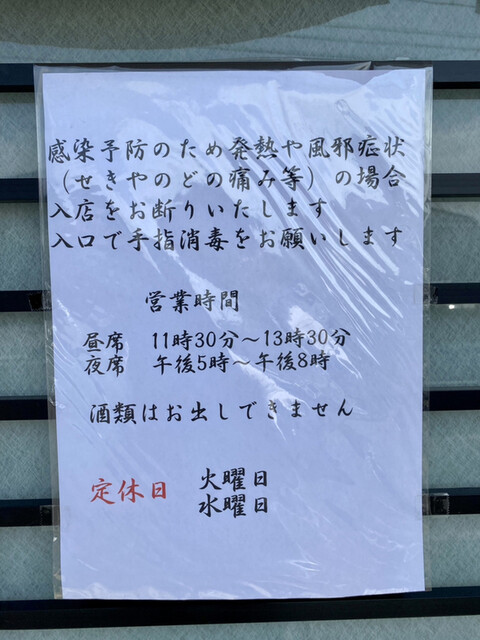 感染予防のため発熱や風邪症状
（せきやのどの痛み等）の場合
入店をお断りいたします
入口で手指消毒をお願いします
営業時間
昼席 11時30分～13時30分
夜席 午後5時～午後8時
酒類はお出しできません
定休日 火曜日
水曜日